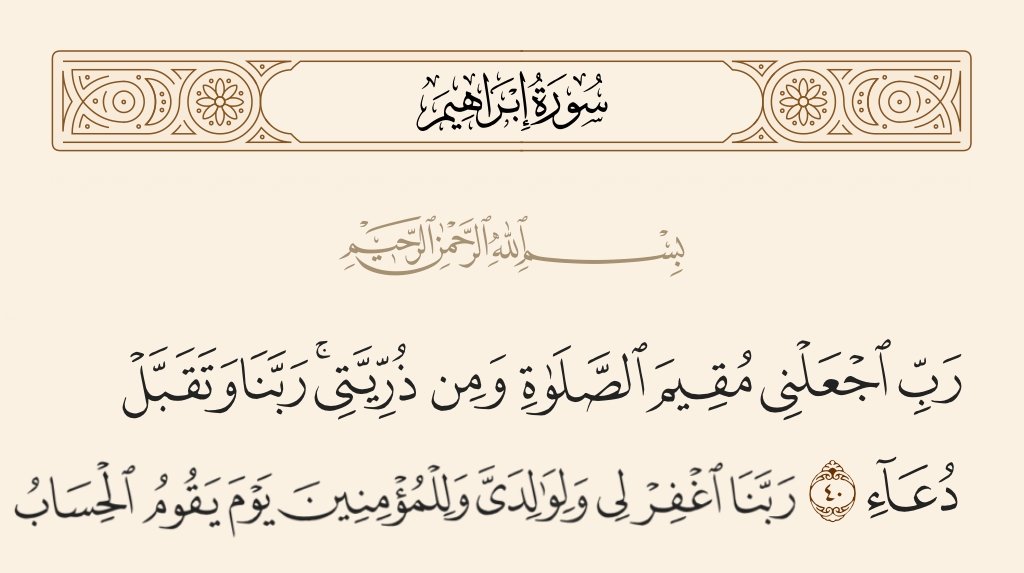 سُورَةُ إِبْرَاهِيمَ
بِسْمِ ٱللَّهِ ٱلرَّحْمَٰنِ ٱلرَّحِيمِ
رَبِّ ٱجْعَلْنِى مُقِيمَ ٱلصَّلَوٰةِ وَمِن ذُرِّيَّتِى ۚ رَبَّنَا وَتَقَبَّلْ
دُعَآءِ ٤٠ رَبَّنَا ٱغْفِرْ لِى وَلِوَٰلِدَىَّ وَلِلْمُؤْمِنِينَ يَوْمَ يَقُومُ ٱلْحِسَابُ